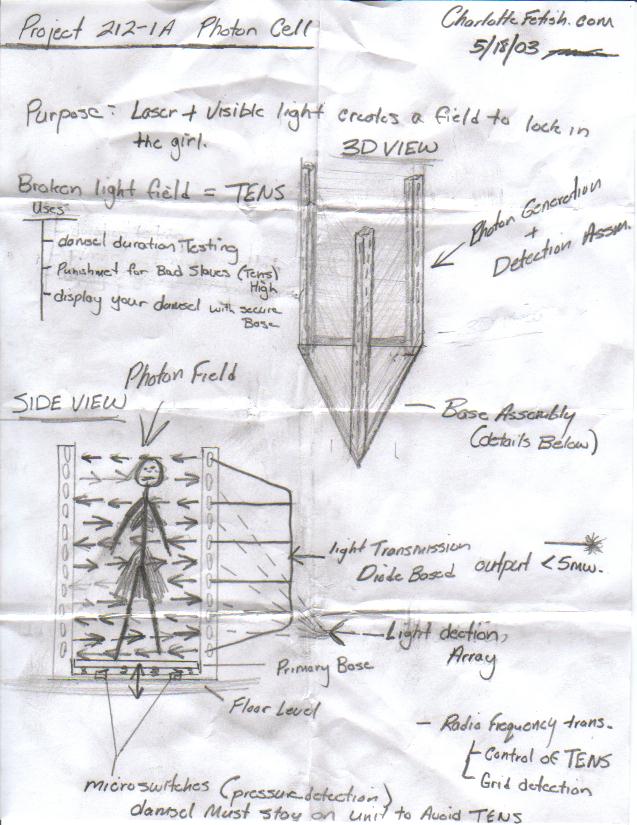 Project 212-1A Photon Cell
CharlotteFetish.com
5/18/03
Purpose: Laser + Visible light creates a field to lock in
the girl.
3D VIEW
Broken light field = TENS
Uses
damsel duration Testing
Punishmet for Bad Slaves (Tens)
High
display your damsel with secure
Base
Photon Generation
+
Detection Assm.
Photon Field
SIDE VIEW
Base Assembly
(details Below)
light Transmission
Diode Based output < 5mw.
Light dection,
Array
Primary Base
Floor Level
Radio Frequency trans.
Control of TENS
Grid detection
microswitches (pressure detection)
damsel Must stay on unit to Avoid TENS